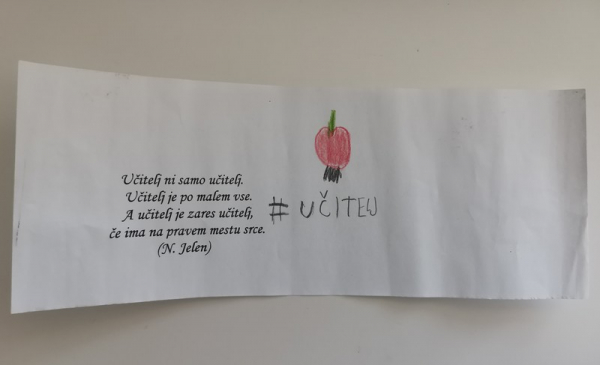 Učitelj ni samo učitelj.
Učitelj je po malem vse.
A učitelj je zares učitelj,
če ima na pravem mestu srce.
(N. Jelen)
# UČITELJ